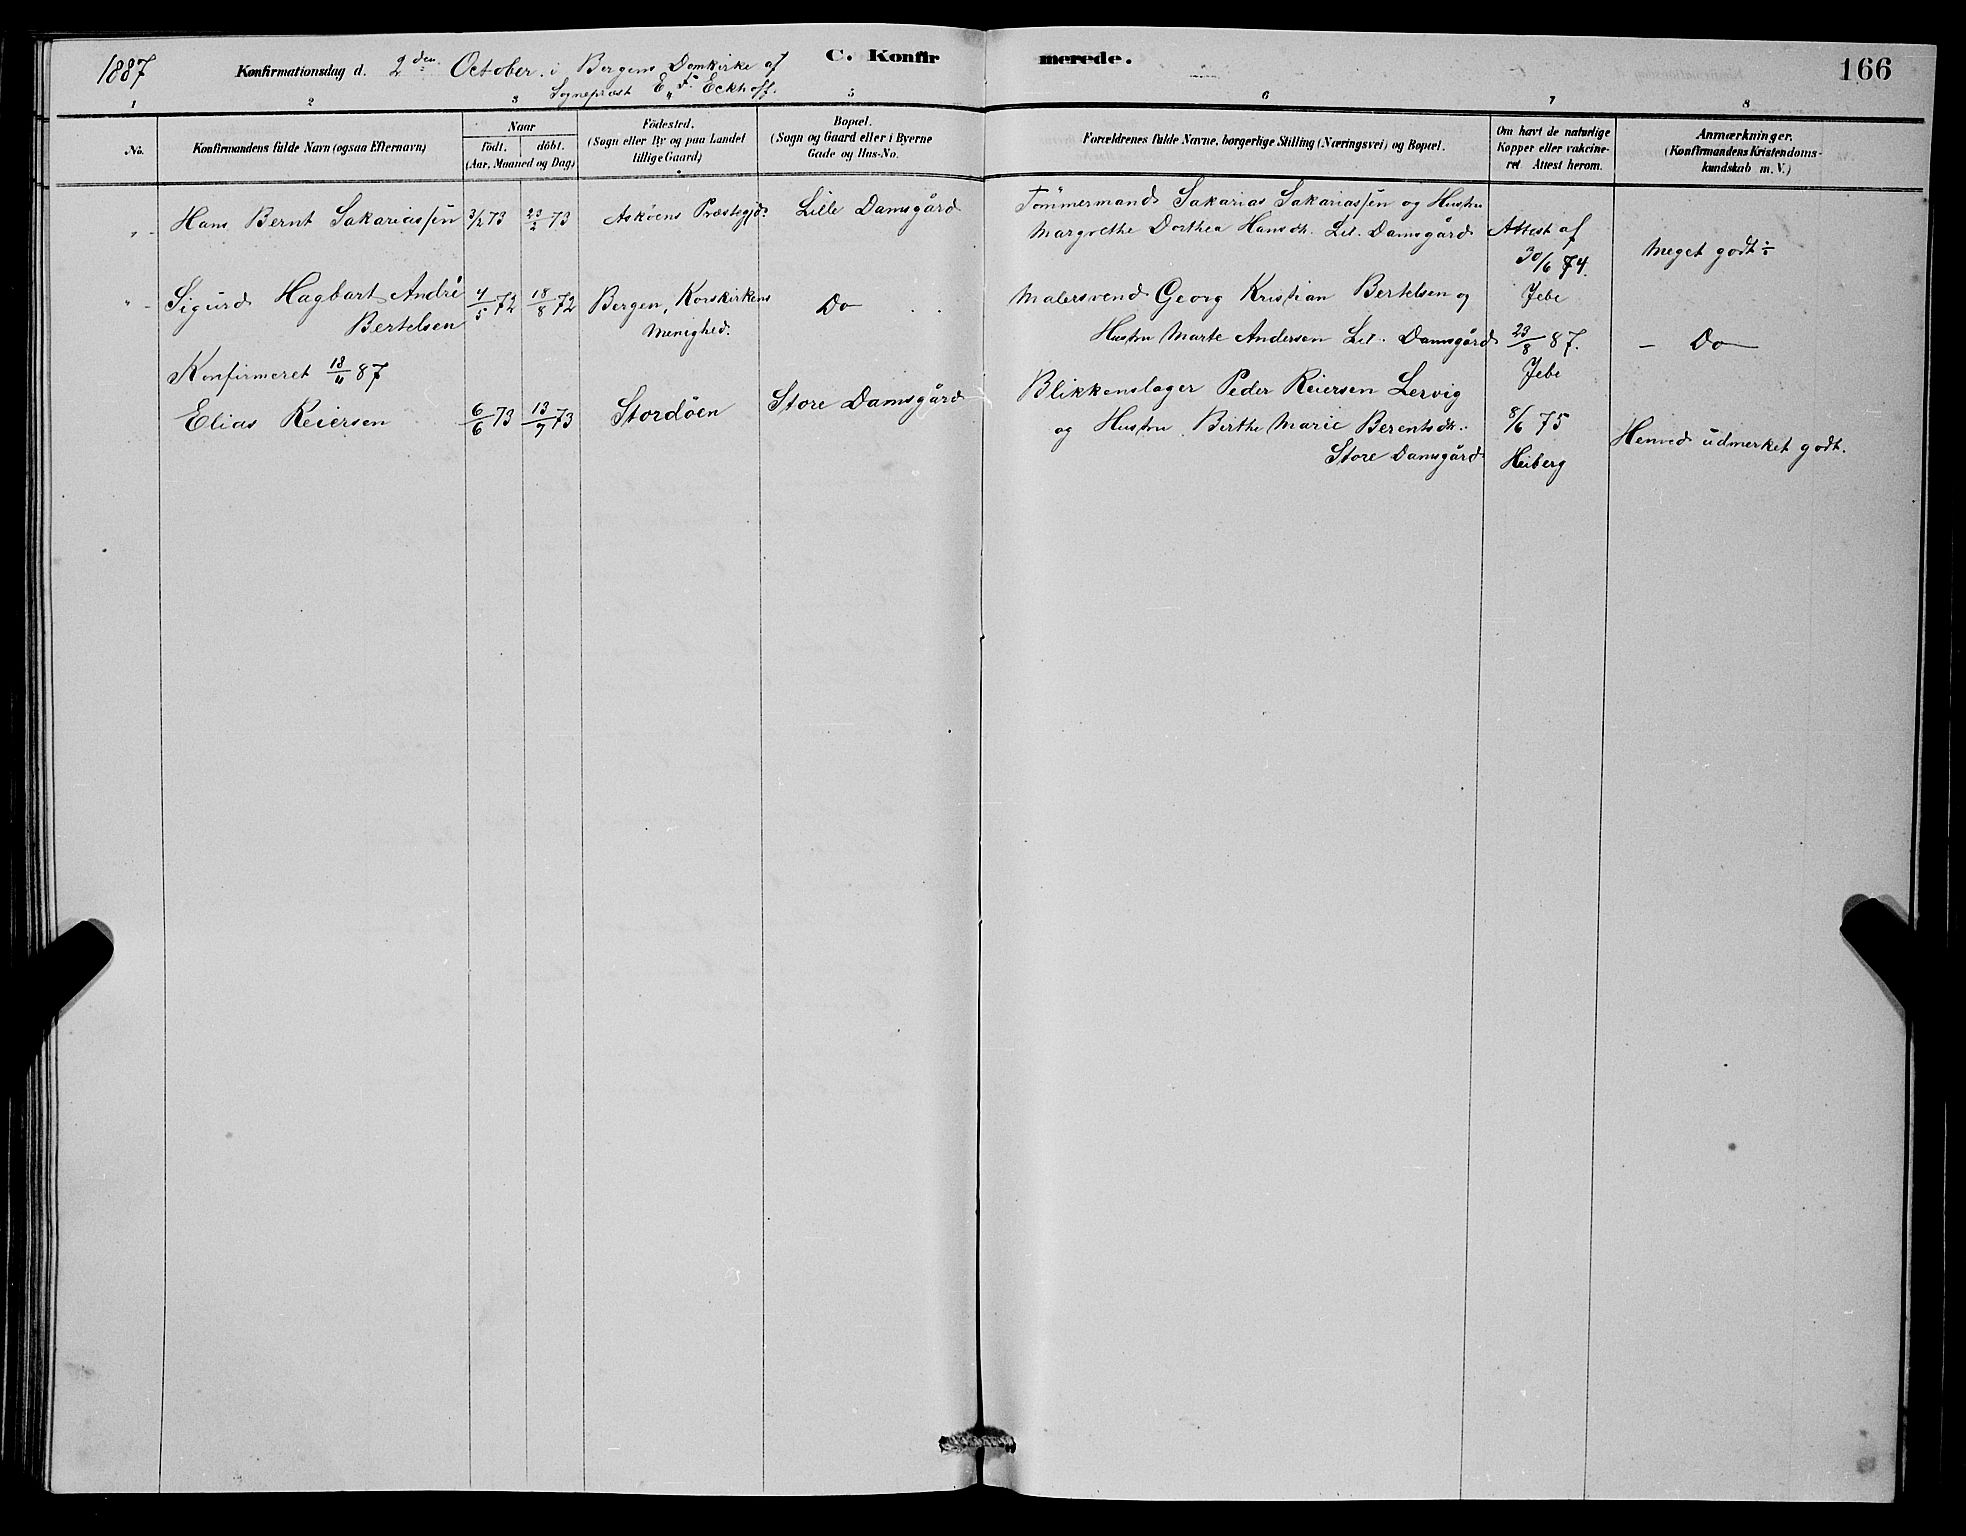 1887
Konfirmationsdag d. 2den October i Bergens Domkirke af
Sognepræst E. F. Eckhoff.
C. Konfirmerede.
166
1 2 3 5 6 7 8
No.
Konfirmandens fulde Navn (ogsaa Efternavn)
Naar
födt. döbt.
(Aar, Maaned og Dag)
Födested.
(Sogn eller By og paa Landet
tillige Gaard)
Bopæl.
(Sogn og Gaard eller i Byerne
Gade og Hus-No.
Forældrenes fulde Navne, borgerlige Stilling (Næringsvei) og Bopæl.
Om havt de naturlige
Kopper eller vakcine-
ret. Attest herom.
Anmærkninger.
(Konfirmandens Kristendoms-
kundskab m. V.)
" Hans Bernt Sakariassen 3/2 73 23/2 73 Asköens Præstegjd. Lille Damsgård
Tömmermand Sakarias Sakariassen og Hustru
Margrethe Dorthea Hansdtr. Lil. Damsgård
Attest af
30/6 74.
Jebe
Meget godt ÷
" Sigurd Hagbart André
Bertelsen
4/5 72 18/8 72 Bergen, Korskirkens
Menighed.
Do
Malersvend Georg Kristian Bertelsen og
Hustru Marte Andersen Lil. Damsgård
23/8 87.
Jebe
- Do -
Konfirmeret 13/11 87
Elias Reiersen 6/6 73 13/7 73 Stordöen Store Damsgård
Blikkenslager Peder Reiersen Lervig
og Hustru Birthe Marie Berentsdtr.
Store Damsgård
8/6 75
Heiberg
Henved udmerket godt.